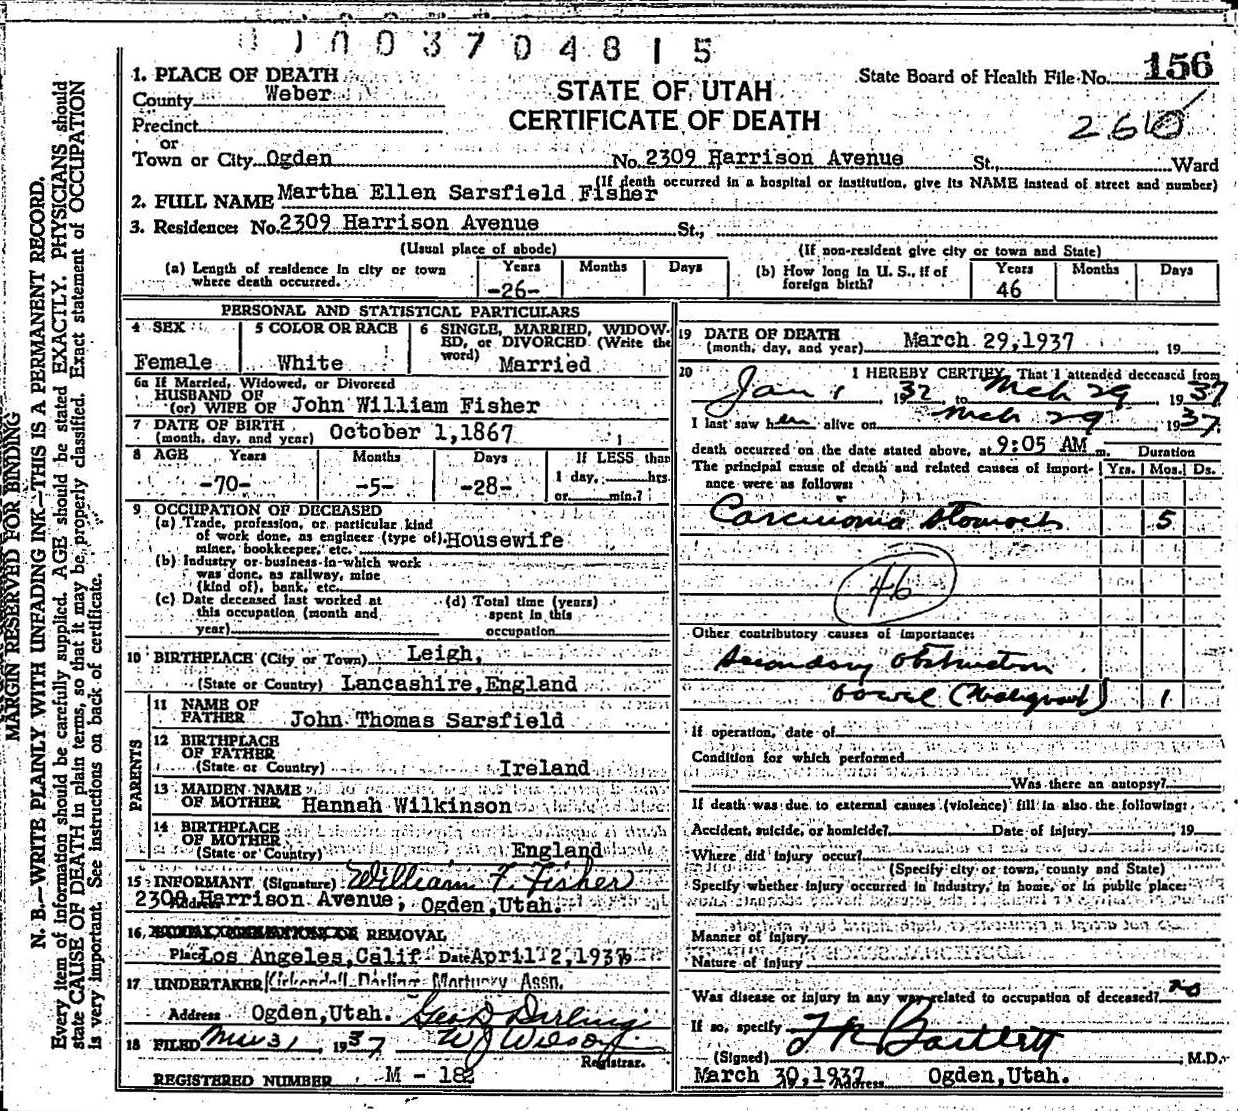 01003704815
1. PLACE OF DEATH
County Weber
Precinct
or
Town or City Ogden No. 2309 Harrison Avenue St., Ward
STATE OF UTAH
CERTIFICATE OF DEATH
State Board of Health File No. 156
260
(If death occurred in a hospital or institution, give its NAME instead of street and number)
2. FULL NAME Martha Ellen Sarsfield Fisher
3. Residence: No. 2309 Harrison Avenue St.,
(Usual place of abode) (If non-resident give city or town and State)
(a) Length of residence in city or town where death occurred. Years -26- Months Days
(b) How long in U. S., if of foreign birth? Years 46 Months Days
PERSONAL AND STATISTICAL PARTICULARS
4 SEX Female
5 COLOR OR RACE White
6 SINGLE, MARRIED, WIDOWED, or DIVORCED (Write the word) Married
6a If Married, Widowed, or Divorced
HUSBAND OF
(or) WIFE OF John William Fisher
7 DATE OF BIRTH
(month, day, and year) October 1,1867
8 AGE Years -70- Months -5- Days -28- If LESS than 1 day, hrs. or min.?
9 OCCUPATION OF DECEASED
(a) Trade, profession, or particular kind
of work done, as engineer (type of), Housewife
miner, bookkeeper, etc.
(b) Industry or business in which work
was done, as railway, mine
(kind of), bank, etc.
(c) Date deceased last worked at this occupation (month and year)
(d) Total time (years) spent in this occupation
10 BIRTHPLACE (City or Town) Leigh,
(State or Country) Lancashire,England
PARENTS
11 NAME OF
FATHER John Thomas Sarsfield
12 BIRTHPLACE
OF FATHER
(State or Country) Ireland
13 MAIDEN NAME
OF MOTHER Hannah Wilkinson
14 BIRTHPLACE
OF MOTHER
(State or Country) England
15 INFORMANT (Signature) William F. Fisher
Address 2309 Harrison Avenue, Ogden,Utah.
16 REMOVAL
Place Los Angeles,Calif Date April 2,1937
17 UNDERTAKER Kirkendall-Darling Mortuary Assn.
Address Ogden,Utah. Geo D Darling
18 FILED Mar 31, 1937 W J Wilson
Registrar.
REGISTERED NUMBER M - 182
19 DATE OF DEATH
(month, day, and year) March 29,1937 19
20 I HEREBY CERTIFY, That I attended deceased from
Jan 1 1932, to Mch 29, 1937
I last saw her alive on Mch 29, 1937.
death occurred on the date stated above, at 9:05 AM m. Duration
The principal cause of death and related causes of importance were as follows: Yrs. Mos. Ds.
Carcinoma stomach 5
46
Other contributory causes of importance:
Secondary obstruction
bowel (Malignant) 1
If operation, date of
Condition for which performed
Was there an autopsy?
If death was due to external causes (violence) fill in also the following:
Accident, suicide, or homicide? Date of Injury 19
Where did injury occur?
(Specify city or town, county and State)
Specify whether injury occurred in industry, in home, or in public place:
Manner of injury
Nature of injury
Was disease or injury in any way related to occupation of deceased? no
If so, specify
(Signed) F R Bartlett M.D.
March 30,1937 Address Ogden,Utah.
MARGIN RESERVED FOR BINDING
N. B.—WRITE PLAINLY WITH UNFADING INK—THIS IS A PERMANENT RECORD.
Every item of information should be carefully supplied. AGE should be stated EXACTLY. PHYSICIANS should
state CAUSE OF DEATH in plain terms, so that it may be properly classified. Exact statement of OCCUPATION
is very important. See instructions on back of certificate.